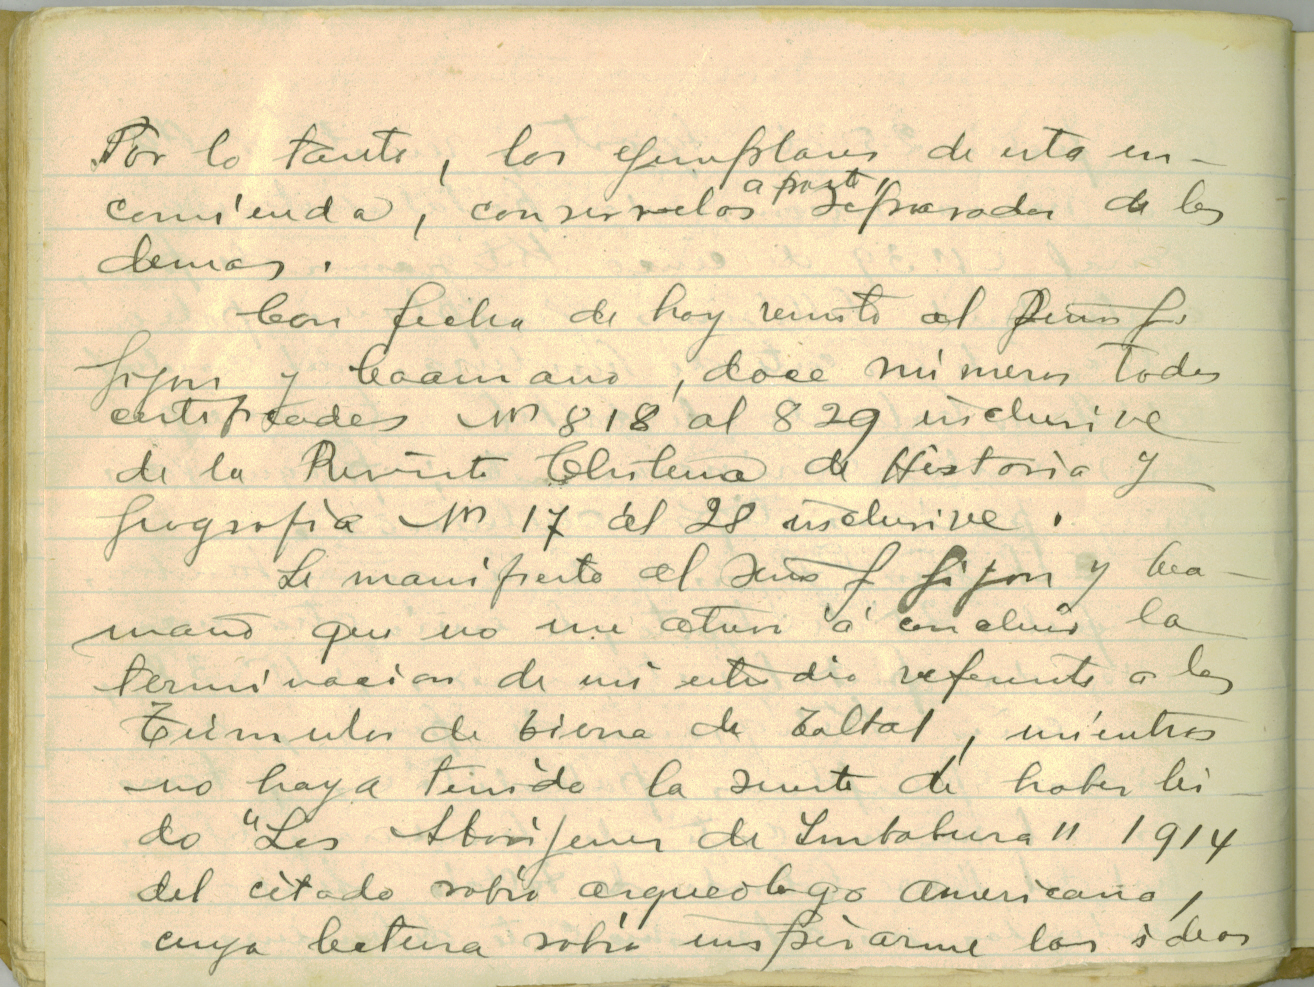 Por lo tanto, los ejemplares de esta en-
comienda, conservelos aparte, separados de los
demas.
Con fecha de hoy remito al Señor J.
Gijon y Caamano, doce números todos
certificados Nos 818 al 829 inclusive
de la Revista Chilena de Historia y
Geografia Nos 17 al 28 inclusive.
Le manifiesto al Señor J Gijon y Caa-
maño que no me atrevi á concluir la
terminacion de mi estudio referente a los
Túmulos de tierra de Taltal, mientras
no haya tenido la suerte de haber lei-
do "Los Aborijenes de Imbabura" 1914
del citado sabio arqueologo americano,
cuya lectura sabrá inspirarme las ideas